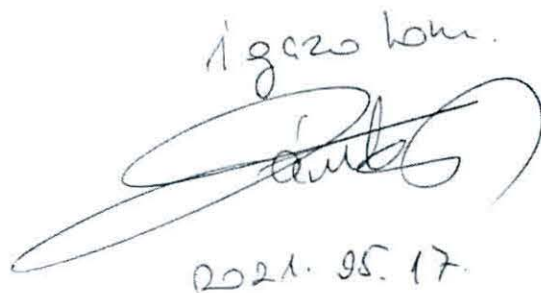 igazolom.
2021. 05. 17.